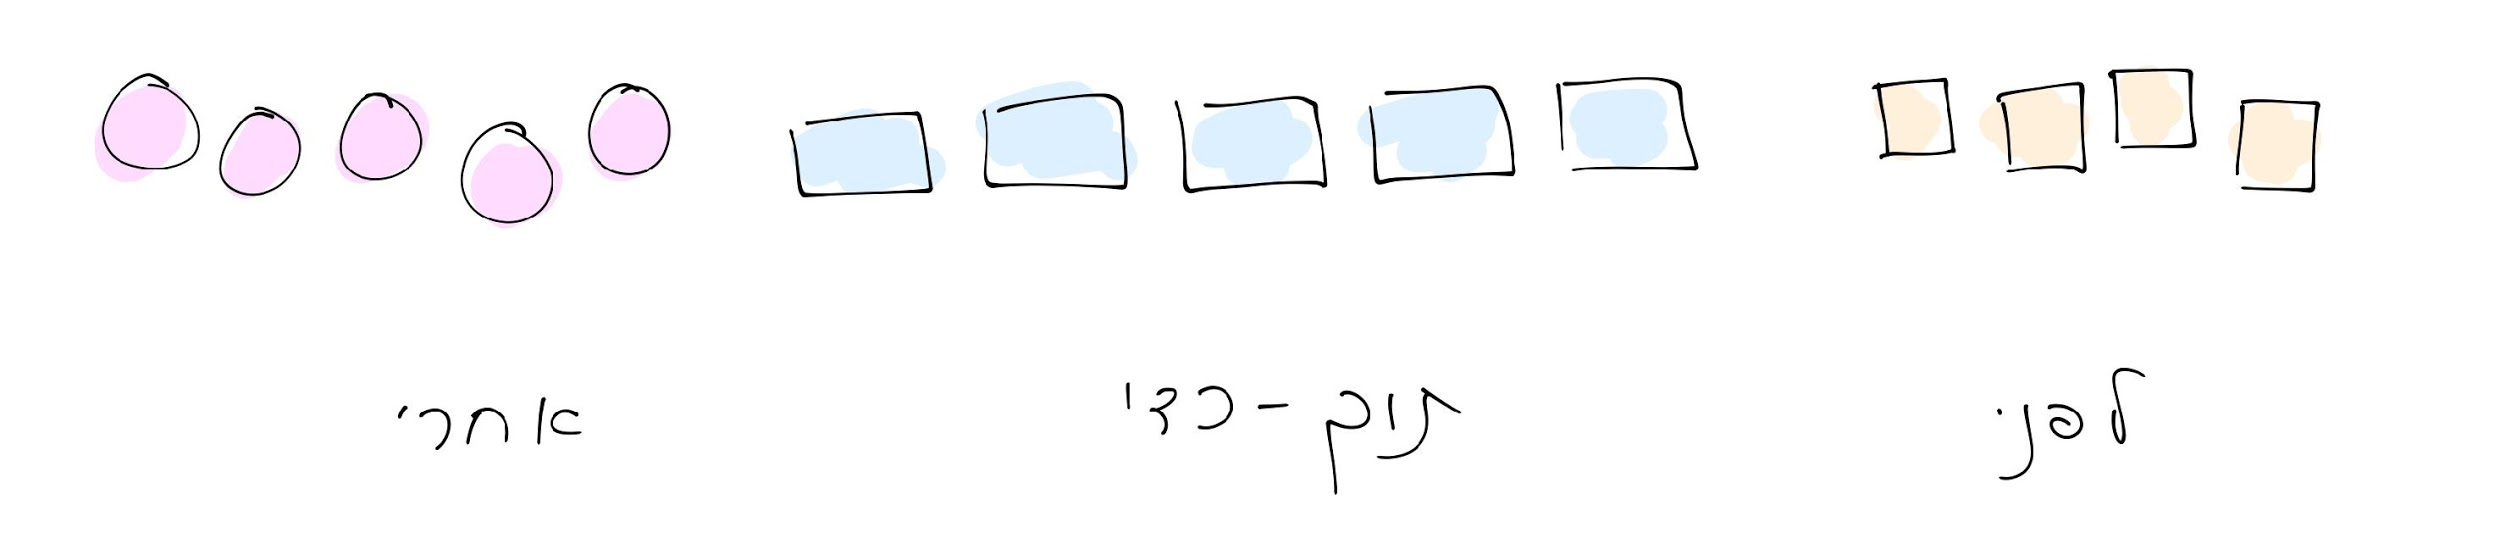 לפני תוך-כדי אחרי